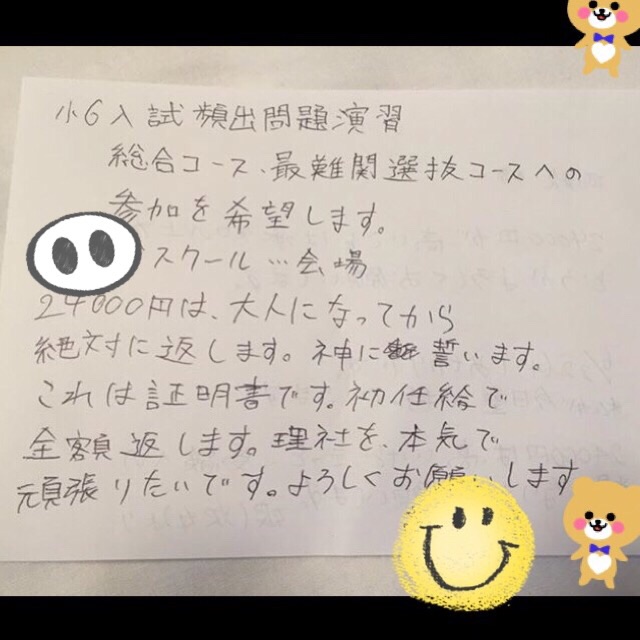 小6入試頻出問題演習
総合コース、最難関選抜コースへの
参加を希望します。
スクール…会場
24000円は、大人になってから
絶対に返します。神に誓います。
これは証明書です。初任給で
全額返します。理社を、本気で
頑張りたいです。よろしくお願いします